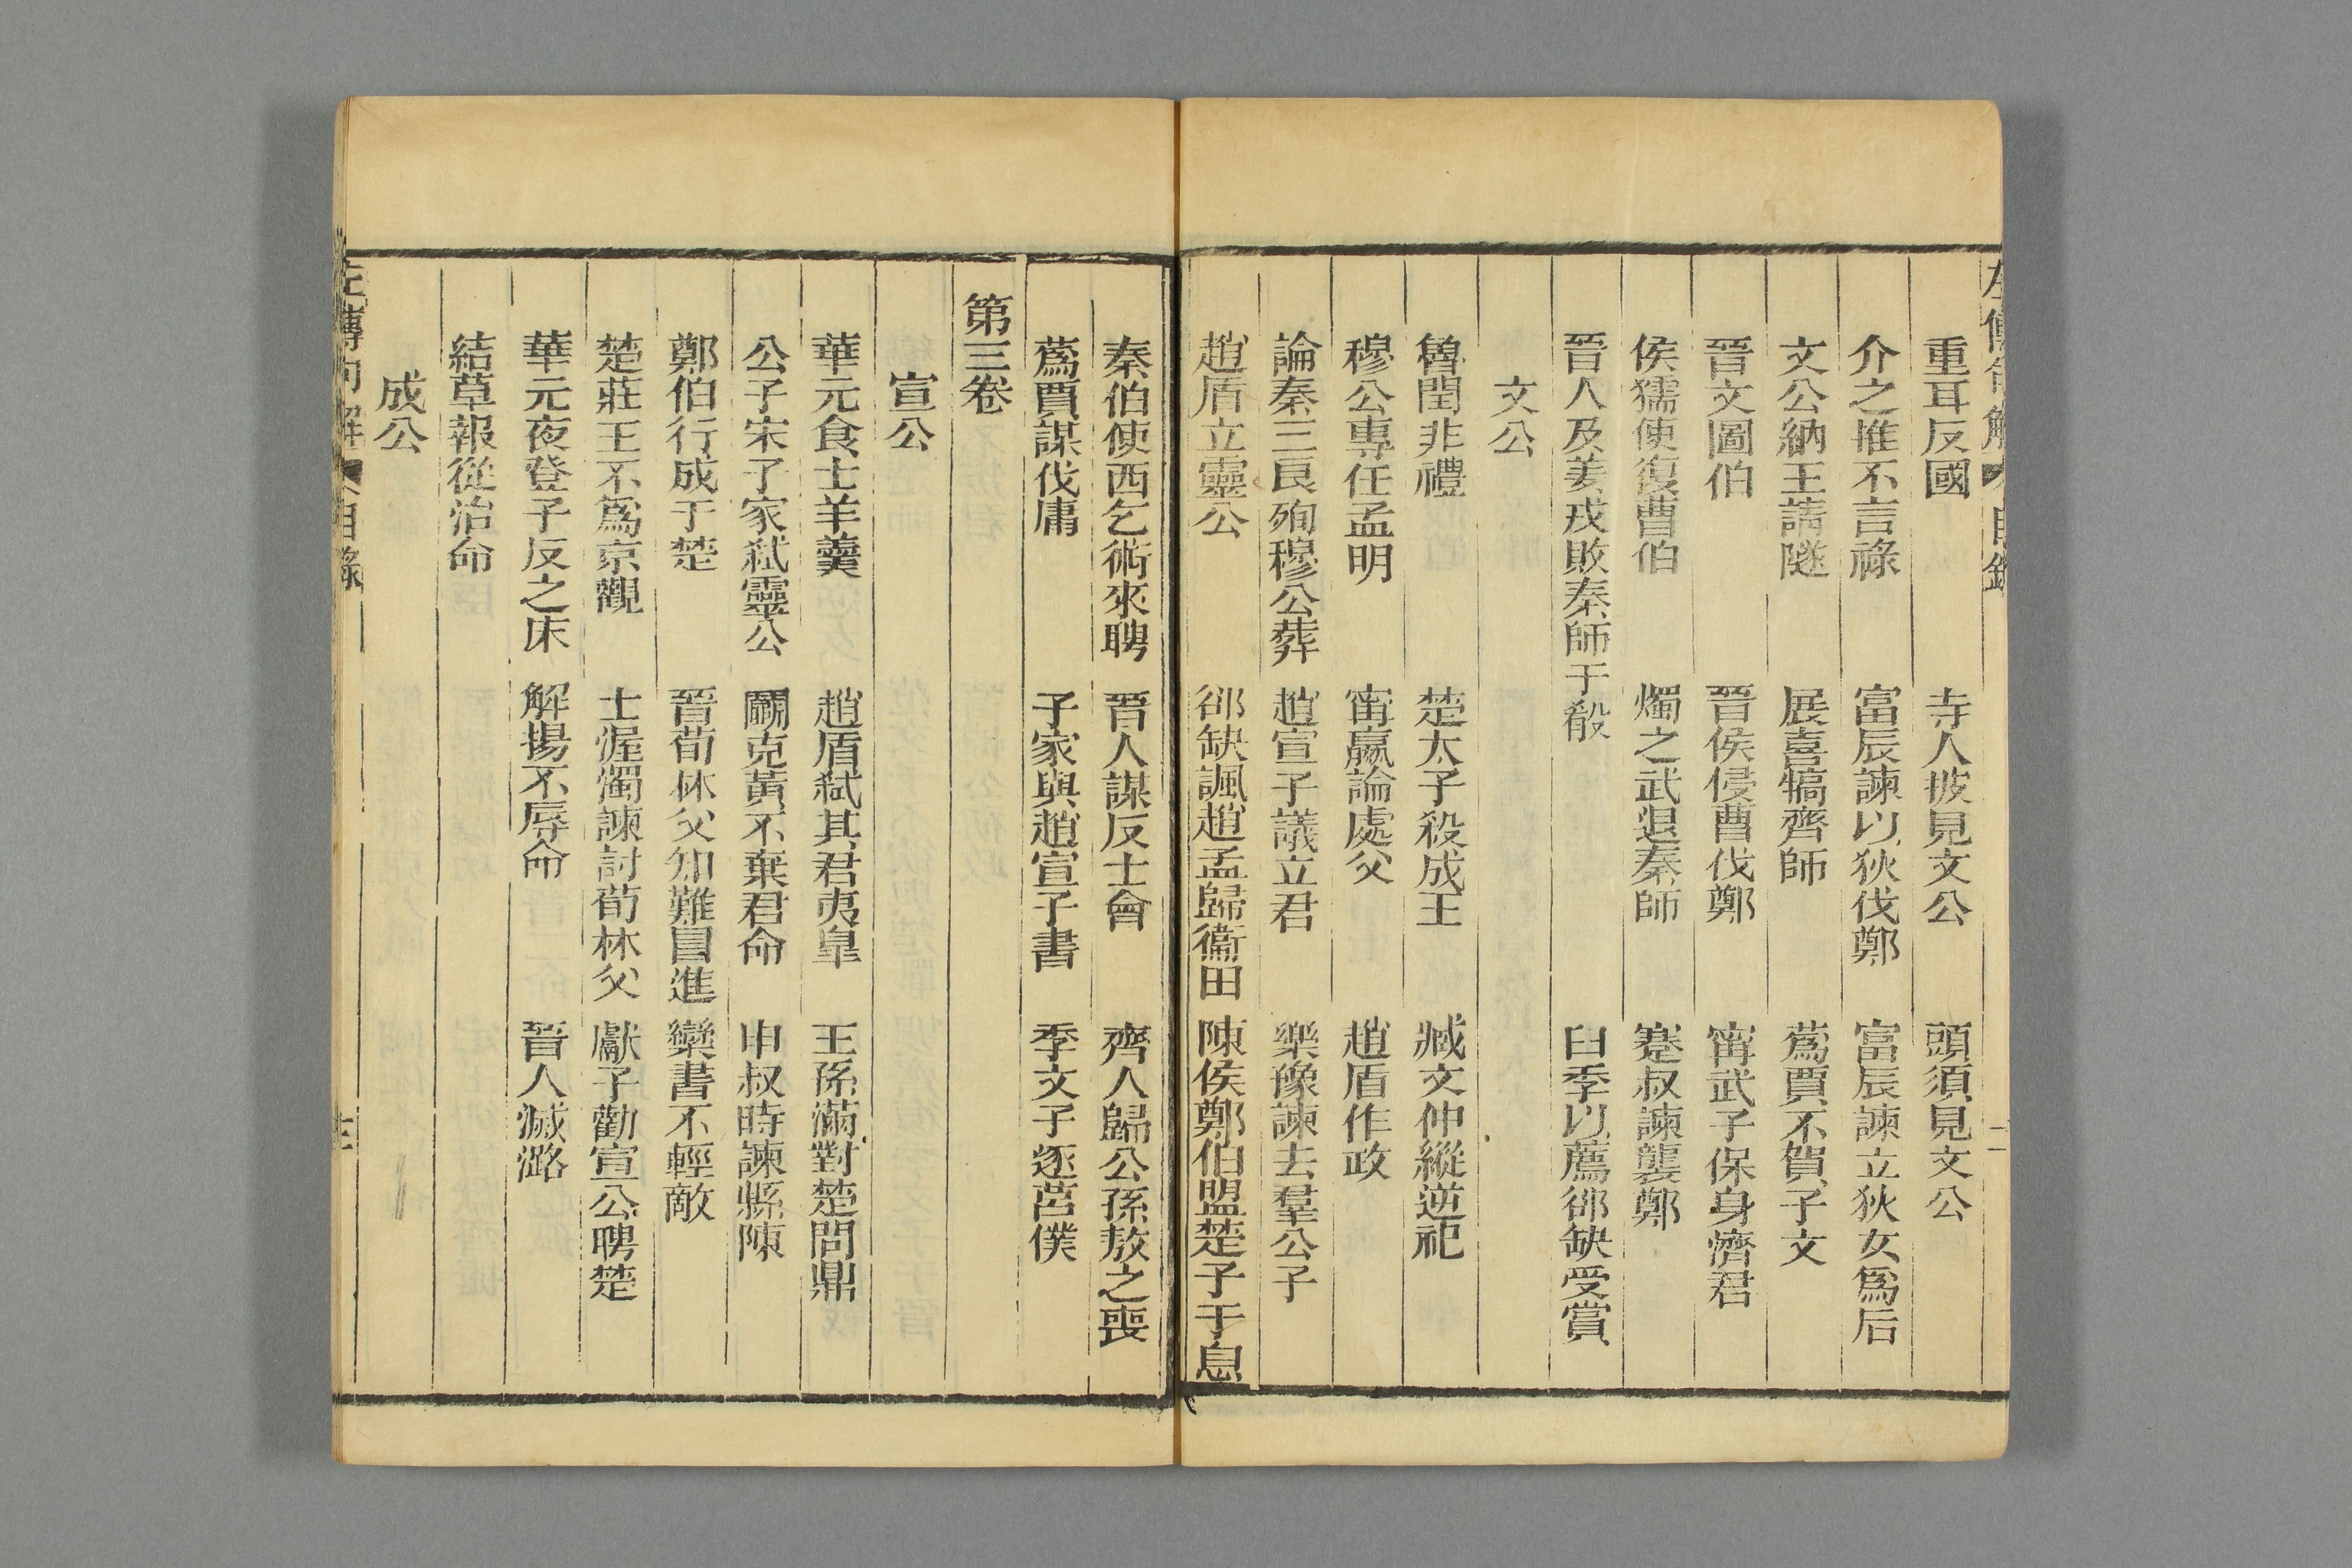 左傳句解 目錄 二
重耳反國 寺人披見文公 頭須見文公
介之推不言祿 富辰諫以狄伐鄭 富辰諫立狄女爲后
文公納王請隧 展喜犒齊師 蔿賈不賀子文
晉文圖伯 晉侯侵曹伐鄭 甯武子保身濟君
侯獳使復曹伯 燭之武退秦師 蹇叔諫襲鄭
晉人及姜戎敗秦師于殽 臼季以薦郤缺受賞
文公
魯閏非禮 楚太子殺成王 臧文仲縱逆祀
穆公專任孟明 甯嬴論處父 趙盾作政
論秦三良殉穆公葬 趙宣子議立君 樂豫諫去羣公子
趙盾立靈公 郤缺諷趙孟歸衞田 陳侯鄭伯盟楚子于息
秦伯使西乞術來聘 晉人謀反士會 齊人歸公孫敖之喪
蔿賈謀伐庸 子家與趙宣子書 季文子逐莒僕
第三卷
宣公
華元食士羊羹 趙盾弑其君夷皐 王孫滿對楚問鼎
公子宋子家弑靈公 鬭克黃不棄君命 申叔時諫縣陳
鄭伯行成于楚 晉荀林父知難冒進 欒書不輕敵
楚莊王不爲京觀 士渥濁諫討荀林父 獻子勸宣公聘楚
華元夜登子反之床 解揚不辱命 晉人滅潞
結草報從治命
成公
左傳句解 目錄